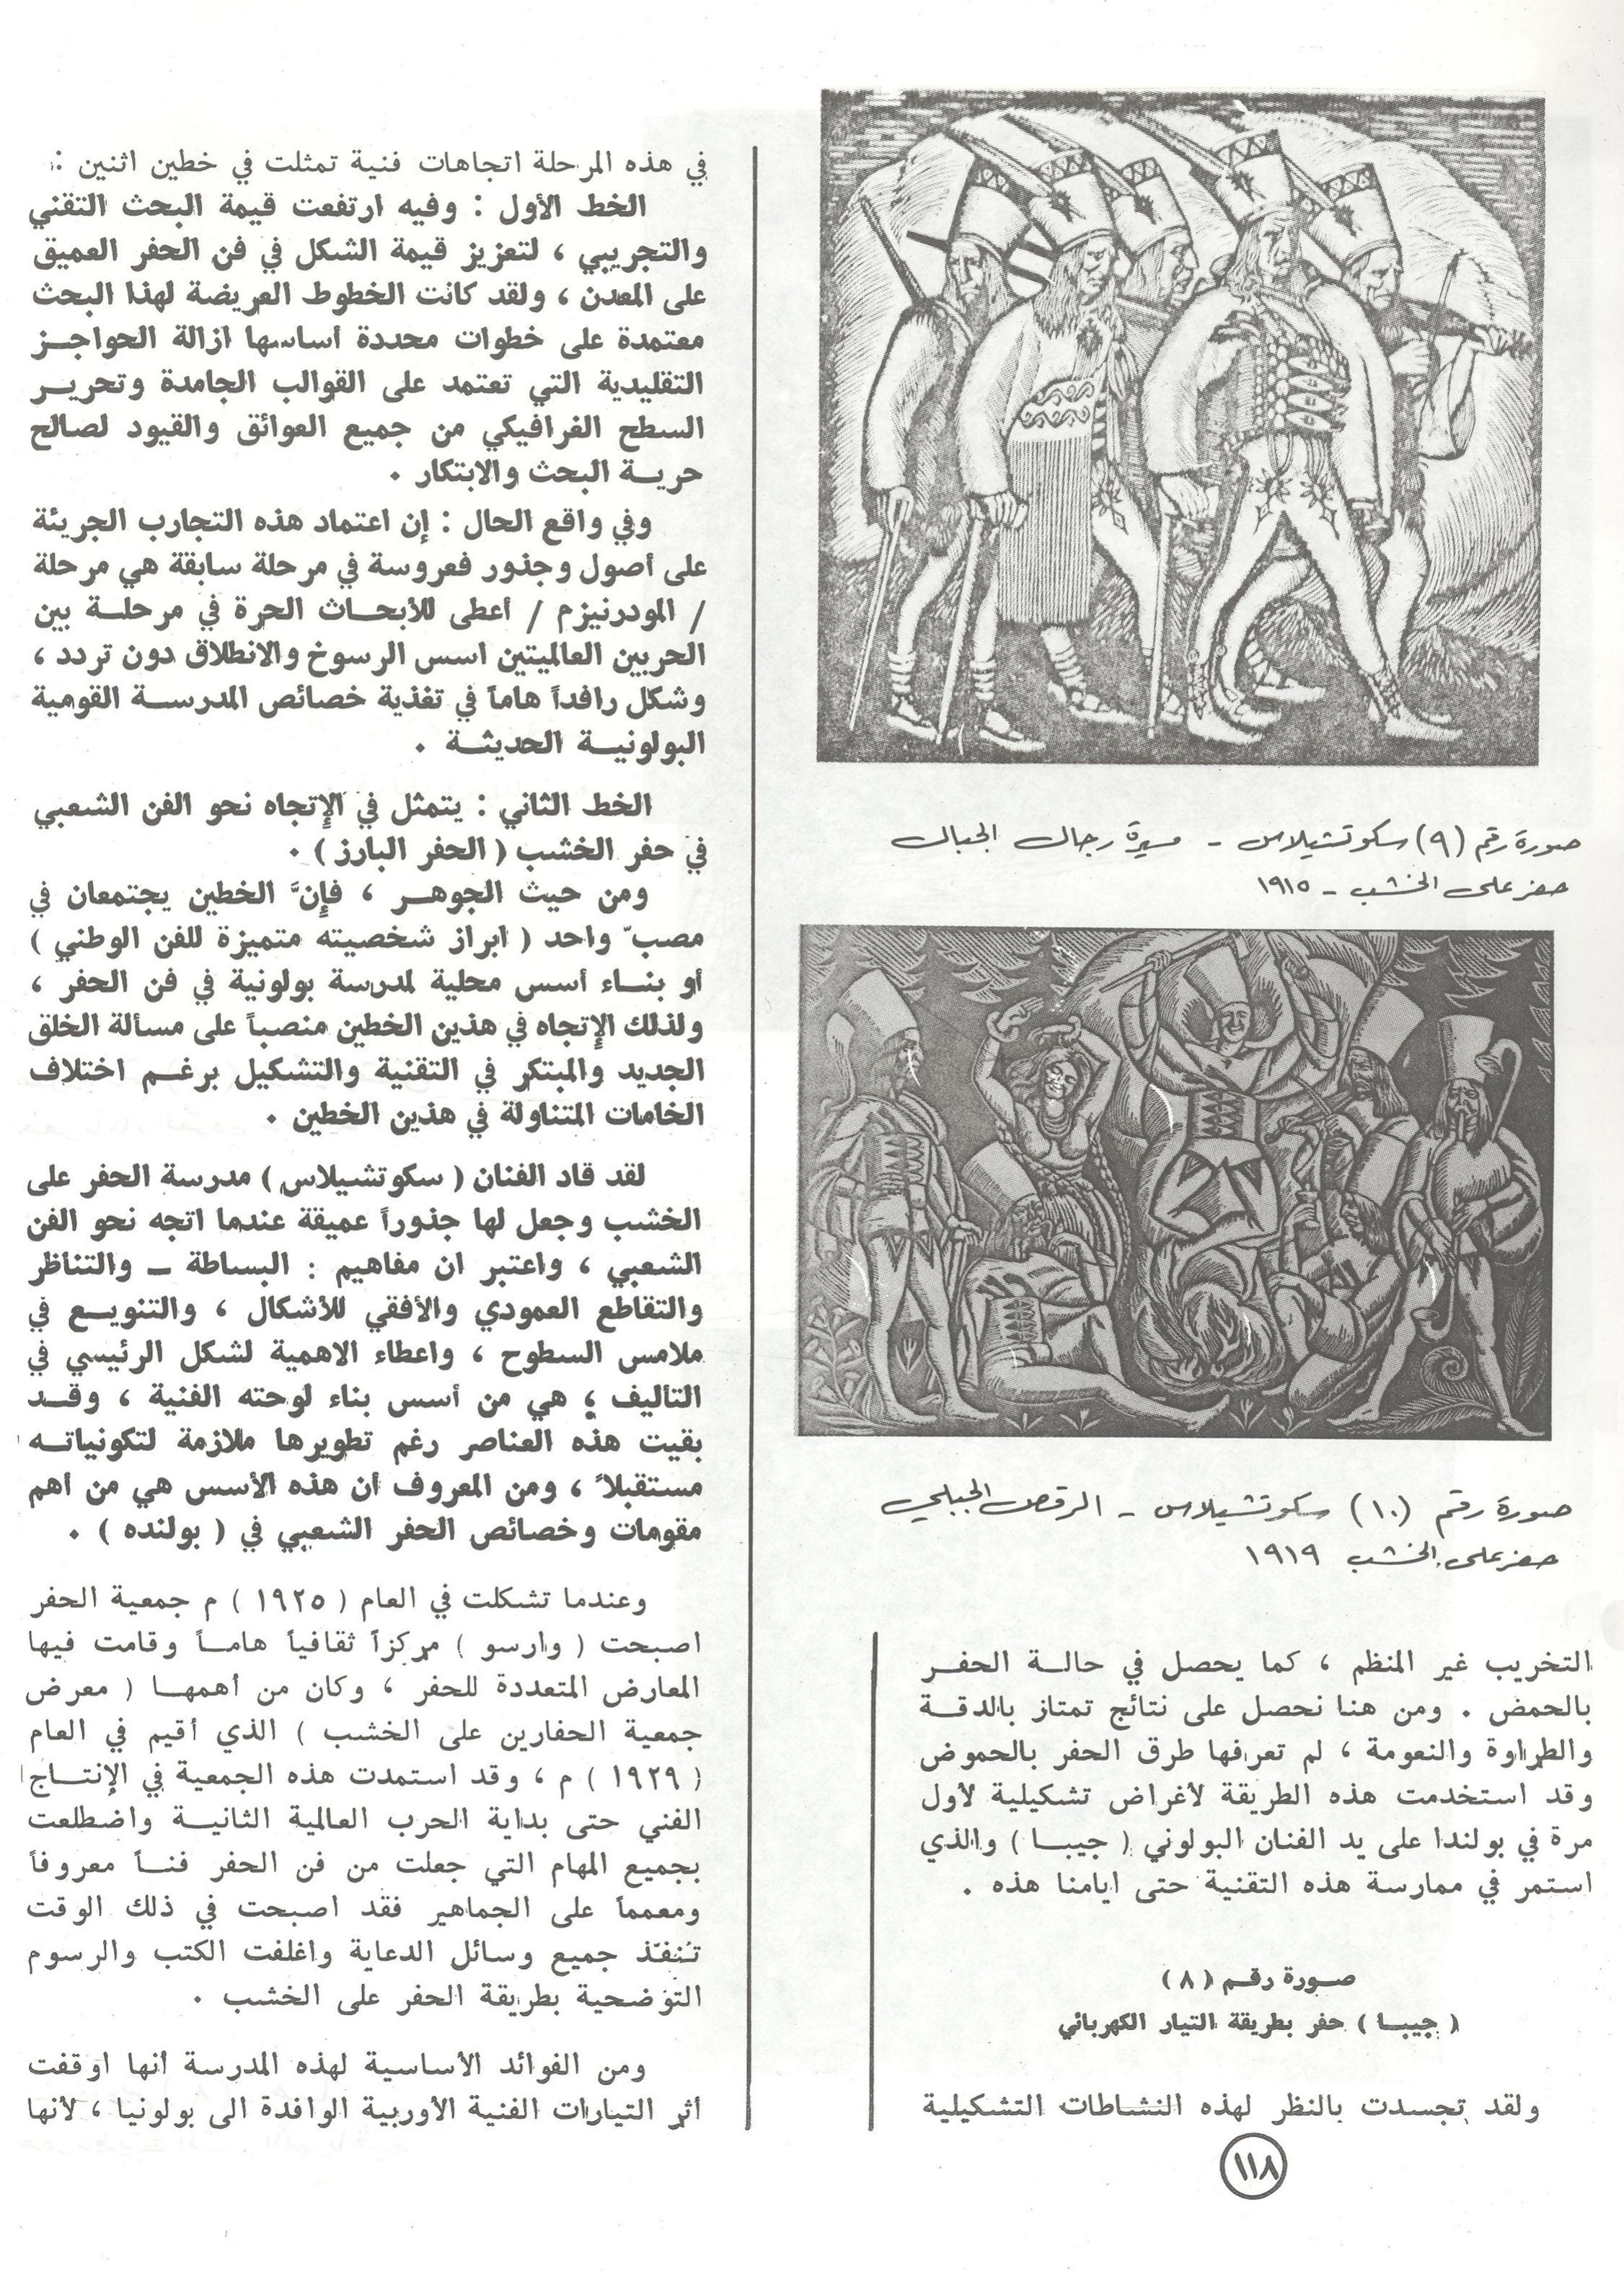 صورة رقم (٩) سكوتشيلاس - مسيرة رجال الجبال
حفر على الخشب - ١٩١٥
صورة رقم (١٠) سكوتشيلاس - الرقص الجبلي
حفر على الخشب ١٩١٩
التخريب غير المنظم ، كما يحصل في حالة الحفر
بالحمض . ومن هنا نحصل على نتائج تمتاز بالدقة
والطراوة والنعومة ، لم تعرفها طرق الحفر بالحموض
وقد استخدمت هذه الطريقة لأغراض تشكيلية لأول
مرة في بولندا على يد الفنان البولوني ( جيبا ) والذي
استمر في ممارسة هذه التقنية حتى ايامنا هذه .
صورة رقم ( ٨ )
( جيبا ) حفر بطريقة التيار الكهربائي
ولقد تجسدت بالنظر لهذه النشاطات التشكيلية
في هذه المرحلة اتجاهات فنية تمثلت في خطين اثنين :
الخط الأول : وفيه ارتفعت قيمة البحث التقني
والتجريبي ، لتعزيز قيمة الشكل في فن الحفر العميق
على المعدن ، ولقد كانت الخطوط العريضة لهذا البحث
معتمدة على خطوات محددة أساسها ازالة الحواجز
التقليدية التي تعتمد على القوالب الجامدة وتحرير
السطح الغرافيكي من جميع العوائق والقيود لصالح
حرية البحث والابتكار .
وفي واقع الحال : إن اعتماد هذه التجارب الجريئة
على أصول وجذور فعروسة في مرحلة سابقة هي مرحلة
/ المودرنيزم / أعطى للأبحاث الحرة في مرحلة بين
الحربين العالميتين اسس الرسوخ والانطلاق دون تردد ،
وشكل رافداً هاماً في تغذية خصائص المدرسة القومية
البولونية الحديثة .
الخط الثاني : يتمثل في الإتجاه نحو الفن الشعبي
في حفر الخشب ( الحفر البارز ) .
ومن حيث الجوهر ، فإنَّ الخطين يجتمعان في
مصبّ واحد ( ابراز شخصيته متميزة للفن الوطني )
أو بناء أسس محلية لمدرسة بولونية في فن الحفر ،
ولذلك الإتجاه في هذين الخطين منصباً على مسألة الخلق
الجديد والمبتكر في التقنية والتشكيل برغم اختلاف
الخامات المتناولة في هذين الخطين .
لقد قاد الفنان ( سكوتشيلاس ) مدرسة الحفر على
الخشب وجعل لها جذوراً عميقة عندما اتجه نحو الفن
الشعبي ، واعتبر ان مفاهيم : البساطة – والتناظر
والتقاطع العمودي والأفقي للأشكال ، والتنويع في
ملامس السطوح ، واعطاء الاهمية لشكل الرئيسي في
التأليف ؛ هي من أسس بناء لوحته الفنية ، وقد
بقيت هذه العناصر رغم تطويرها ملازمة لتكونياته
مستقبلاً ، ومن المعروف أن هذه الأسس هي من أهم
مقومات وخصائص الحفر الشعبي في ( بولنده ) .
وعندما تشكلت في العام ( ١٩٢٥ ) م جمعية الحفر
اصبحت ( وارسو ) مركزاً ثقافياً هاماً وقامت فيها
المعارض المتعددة للحفر ، وكان من أهمها ( معرض
جمعية الحفارين على الخشب ) الذي أقيم في العام
( ١٩٢٩ ) م ، وقد استمدت هذه الجمعية في الإنتاج
الفني حتى بداية الحرب العالمية الثانية واضطلعت
بجميع المهام التي جعلت من فن الحفر فناً معروفاً
ومعمماً على الجماهير فقد اصبحت في ذلك الوقت
تنفّذ جميع وسائل الدعاية واغلفت الكتب والرسوم
التوضحية بطريقة الحفر على الخشب .
ومن الفوائد الأساسية لهذه المدرسة أنها اوقفت
أثر التيارات الفنية الأوربية الوافدة الى بولونيا ، لأنها
١١٨